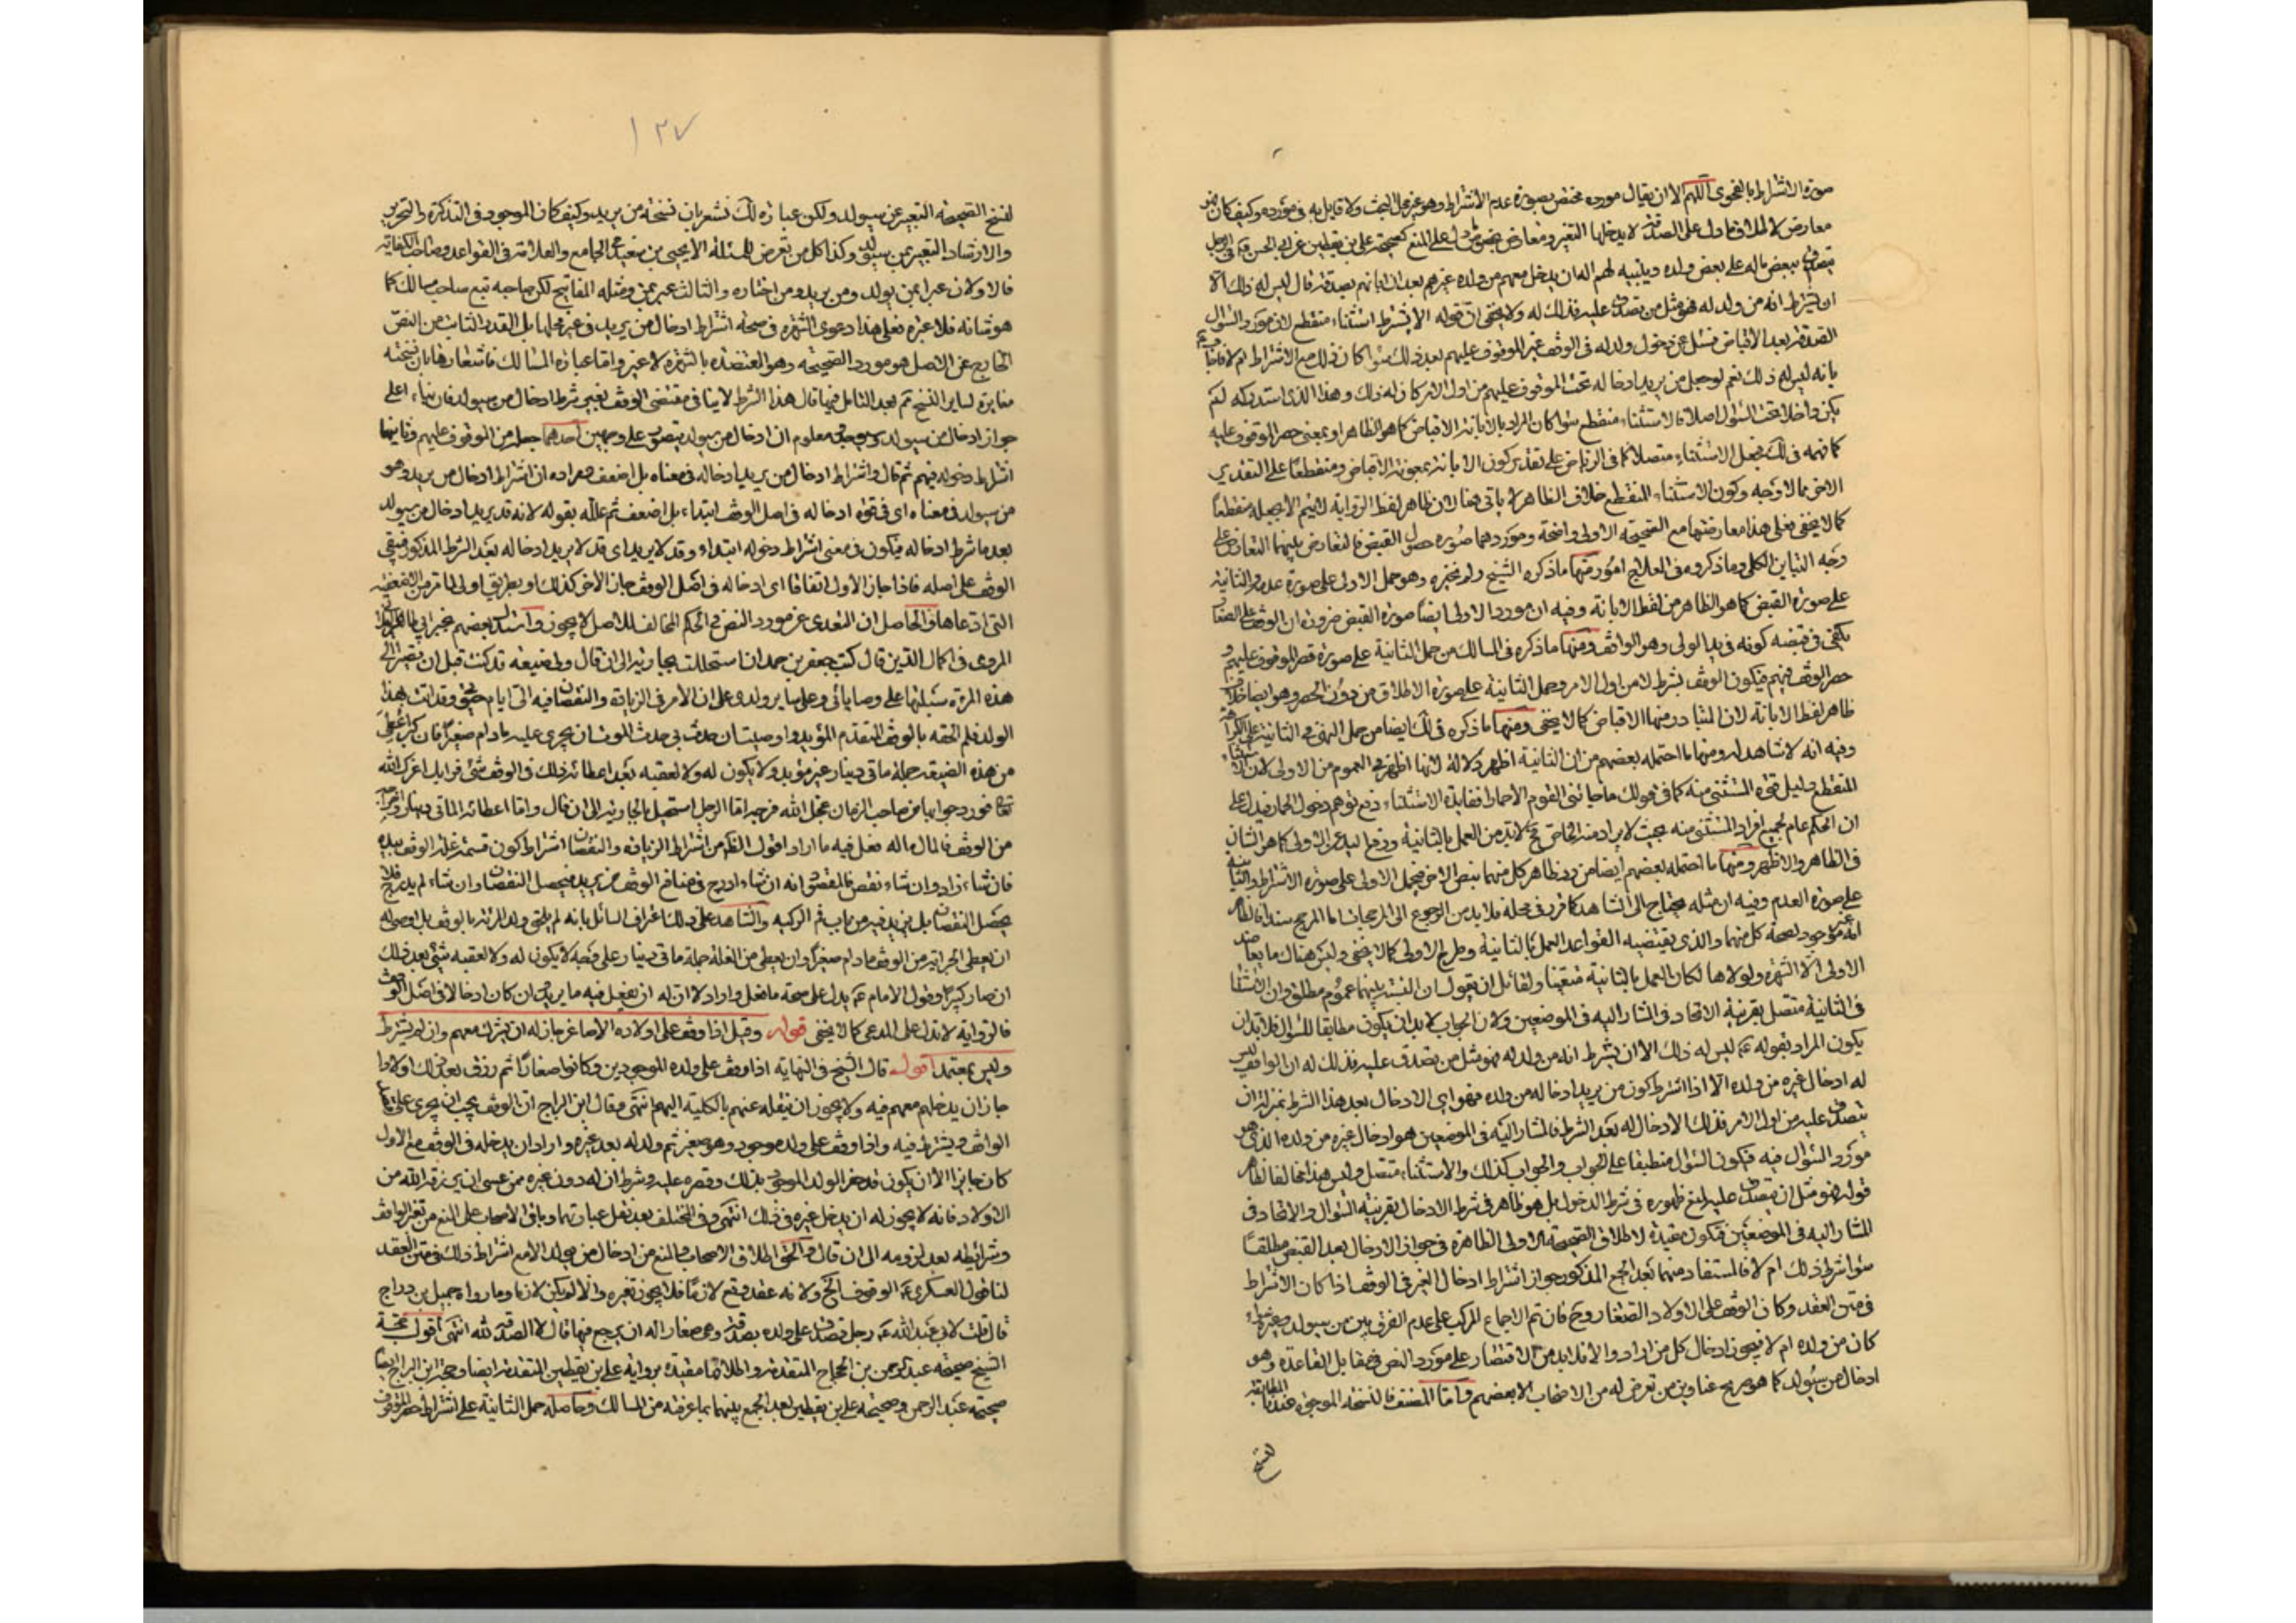 صورة الاشتراط بالفحوى اللهم الا ان يقال مورده مختص بصورة عدم الاشتراط وهو غير محل البحث ولا قايل به فى مورده وكيف كان
معارض لا طلاق ما دل على الصدقة لا يدخلها التغير ومعارض بنص دل على المنع كصحيحة على بن يقطين عن ابى الحسن فى الرجل
يتصدق ببعض ماله على بعض ولده ويبينه لهم اله ان يدخل معهم من ولده غيرهم بعد ان ابانهم بصدقة قال ليس له ذلك الا
ان يشترط انه من ولد له فهو مثل من تصدق عليه فذلك له ولا يخفى ان قوله الا يشترط استثناء منقطع لان مورد السؤال
الصدقة بعد الاقباض فسئل عن دخول ولد له فى الوقف غير الموقوف عليهم بعد ذلك سواء كان ذلك مع الاشتراط ام لا فاجاب
بانه ليس له ذلك نعم لو جعل من يريد ادخاله تحت الموقوف عليهم من اول الامر كان له ذلك وهذا الذى استدركه لم
يكن داخلا تحت السؤال اصلا فالاستثناء منقطع سواء كان المراد بالابانة الاقباض كما هو الظاهر او بمعنى حصر الوقف عليه
كما فهمه فى لك فجعل الاستثناء متصلا كما فى الرياض على تقدير كون الابانة بمعونة الاقباض ومنقطعا على التقدير
الاخر مما لا وجه وكون الاستثناء المنقطع خلاف الظاهر لا ياتى هنا لان ظاهر لفظ الرواية لا يتم الا بجعله منقطعا
كما لا يخفى فعلى هذا معارضتها مع الصحيحة الاولى واضحة وموردهما صورة حصول القبض فالتعارض بينهما التعارض على
وجه التباين الكلى وما ذكروه فى العلاج امور منها ما ذكره الشيخ ولم نخبره وهو حمل الاولى على صورة عدمه والثانية
على صورة القبض كما هو الظاهر من لفظ الابانة وفيه ان مورد الاولى ايضا صورة القبض ضرورة ان الوقف على الصغار
يكفى فى قبضه كونه فى يد الولى وهو الواقف ومنها ما ذكره فى المسالك من حمل الثانية على صورة قصر الموقوف عليهم و
حصر الوقف فيهم فيكون الوقف بشرط لا من اول الامر وحمل الثانية على صورة الاطلاق من دون الحصر وهو ايضا خلاف
ظاهر لفظ الابانة لان المتبادر منها الاقباض كما لا يخفى ومنها ما ذكره فى لك ايضا من حمل النهى فى الثانية على الكراهة
وفيه انه لا شاهد له ومنها ما احتمله بعضهم من ان الثانية اظهر دلالة لانها اظهر فى العموم من الاولى لان الاستثناء
المنقطع دليل قوة المستثنى منه كما فى قولك ما جائنى القوم الا حمارا ففايدة الاستثناء دفع توهم دخول الحمار فيدل على
ان الحكم عام لجميع افراد المستثنى منه بحيث لا يراد منه الخاص فح لا بد من العمل بالثانية ورفع اليد عن الاولى كما هو الشان
فى الظاهر والاظهر ومنها ما احتمله بعضهم ايضا من رد ظاهر كل منهما بنص الاخر فيحمل الاولى على صورة الاشتراط والثانية
على صورة العدم وفيه ان مثله يحتاج الى الشاهد كما قرر فى محله فلا بد من الرجوع الى المرجحات اما المرجح سندا فالظاهر
انه غير موجود لصحة كل منهما والذى يقتضيه القواعد العمل بالثانية وطرح الاولى كما لا يخفى وليس هناك ما يعاضد
الاولى الا الشهرة ولولاها لكان العمل بالثانية متعينا ولقائل ان يقول ان النسبة بينهما عموم مطلق وان الاستثناء
فى الثانية متصل بقرينة الاتحاد فى المشار اليه فى الموضعين ولان الجواب لا بد ان يكون مطابقا للسؤال فلا بد ان
يكون المراد بقوله ع ليس له ذلك الا ان يشترط انه من ولد له فهو مثل من تصدق عليه فذلك له ان الواقف ليس
له ادخال غيره من ولده الا اذا اشترط كون من يريد ادخاله من ولده فهو اى الادخال بعد هذا الشرط بمنزلة ان
تصدق عليه من اول الامر فذلك الادخال له بعد الشرط فالمشار اليه فى الموضعين هو ادخال غيره من ولده الذى هو
مورد السؤال فيه فيكون السؤال منطبقا على الجواب والجواب كذلك والاستثناء متصل وليس هذا مخالفا لظاهر
قوله فهو مثل ان تصدق عليه لمنع ظهوره فى شرط الدخول بل هو ظاهر فى شرط الادخال بقرينة السؤال والاتحاد فى
المشار اليه فى الموضعين فتكون مقيدة لاطلاق الصحيحة الاولى الظاهرة فى جواز الادخال بعد القبض مطلقا
سواء شرط ذلك ام لا فالمستفاد منهما بعد الجمع المذكور جواز اشتراط ادخال الغير فى الوقف اذا كان الاشتراط
فى متن العقد وكان الوقف على الاولاد الصغار وح فان تم الاجماع المركب على عدم الفرق بين من سيولد وغيره سواء
كان من ولده ام لا فيجوز ادخال كل من اراد والا فلا بد من الاقتصار على مورد النص فى مقابل القاعدة وهو
ادخال من سيولد كما هو صريح عناوين من تعرض له من الاصحاب الا بعضهم واما المصنف فالنسخة الموجودة عندنا المطابقة
لنسخ
١٢٧
لنسخ الصحيحة التعبير عن سيولد ولكن عبارة لك تشعر بان نسخته من يريد وكيف كان الموجود فى التذكرة والتحرير
والارشاد التعبير بمن سيولد وكذا كل من تعرض للمسئلة الا يحيى بن سعيد فى الجامع والعلامة فى القواعد وصاحب الكفاية
فالاولان عبرا بمن يولد ومن يريد ومن اختاره والثالث عبر بمن ومثله المفاتيح لكن صاحبه تبع صاحب مسالك كما
هو شانه فلا عبرة فعلى هذا دعوى الشهرة فى صحة اشتراط ادخال من يريد فى غير محلها بل القدر الثابت من النص
الخارج عن الاصل هو مورد الصحيحة وهو المعتضدة بالشهرة لا غير واما عبارة المسالك فاشعارها بان نسخته
مغايرة لساير النسخ ثم بعد التامل فيها قال هذا الشرط لا ينافى مقتضى الوقف يعنى شرط ادخال من سيولد فان بناء على
جواز ادخال من سيولد وسيوجد معلوم ان ادخال من سيولد يتصور على وجهين احدهما جعله من الموقوف عليهم وثانيهما
اشتراط دخوله فيهم ثم قال واشتراط ادخال من يريد ادخاله فى معناه بل اضعف مراده ان اشتراط ادخال من يريد وهو
من سيولد فى معناه اى فى قوة ادخاله فى اصل الوقف ابتداء بل اضعف ثم علله بقوله لانه قد يريد ادخال من سيولد
بعد ما شرط ادخاله فيكون فى معنى اشتراط دخوله ابتداء وقد لا يريد اى قد لا يريد ادخاله بعد الشرط المذكور فيبقى
الوقف على اصله فاذا جاز الاول اتفاقا اى ادخاله فى اصل الوقف جاز الاخر كذلك او بطريق اولى لما مر من الاضعفية
التى ادعاها والحاصل ان التعدى عن مورد النص فى الحكم المخالف للاصل لا يجوز واستدل بعضهم بخبر ابى
المروى فى اكمال الدين قال كتب جعفر بن حمدان استحللت بجارية الى ان قال ولى ضيعة قد كنت قبل ان تصير الى
هذه المرئة سبلتها على وصاياى وعلى ساير ولدى على ان الامر فى الزيادة والنقصان فيه الى ايام حيوتى وقد اتت بهذا
الولد فلم الحقه بالوقف المتقدم المؤبد واوصيت ان حدث بى حدث الموت ان يجرى عليه ما دام صغيرا فان كبر اعطى
من هذه الضيعة جملة ماتى دينار غير مؤبد ولا يكون له ولا لعقبه بعد اعطائه ذلك فى الوقف شئ فرايك اعزك الله
تعالى فورد جوابها من صاحب الزمان عجل الله فرجه اما الرجل استحل بالجارية الى ان قال واما اعطائه الماتى دينار واخراجه
من الوقف فالمال ماله فعل فيه ما اراد اقول الظاهر من اشتراط الزيادة والنقصان اشتراط كون قسمة غلة الوقف بيده
فان شاء زاد وان شاء نقص فالمقصود انه ان شاء ادرج فى منافع الوقف من يريد فيحصل النقصان وان شاء لم يدرج فلا
يحصل النقصان بل يزيد والشاهد على ذلك اعتراف السائل بانه لم يلحق ولد المرئة بالوقف بل اوصى له
ان يعطى الجراية من الوقف ما دام صغيرا وان يعطى من الغلة جملة ماتى دينار على وجه لا يكون له ولا لعقبه شئ بعد ذلك
ان صار كبيرا وقول الامام ع يدل على صحة ما فعل واراد لا ان له ان يفعل فيه ما يريد وان كان ادخالا فى اصل الوقف
فالرواية لا تدل على المدعى كما لا يخفى قوله وقيل اذا وقف على اولاده الاصاغر جاز له ان يشرك معهم وان لم يشترط
وليس بمعتمد اقول قال الشيخ فى النهاية اذا وقف على ولده الموجودين وكانوا صغارا ثم رزق بعد ذلك اولادا
جاز ان يدخلهم معهم فيه ولا يجوز ان ينقله عنهم بالكلية اليهم انتهى وقال ابن البراج ان الوقف يجب ان يجرى على ما
الواقف ويشترط فيه واذا وقف على ولد موجود وهو صغير ثم ولد له بعد غيره واراد ان يدخله فى الوقف مع الاول
كان جايزا الا ان يكون قد خص الولد الموجود بذلك وقصره عليه وشرط ان له دون غيره ممن عسى ان يرزقه الله من
الاولاد فانه لا يجوز له ان يدخل غيره فى ذلك انتهى وفى المختلف بعد نقل عباراتها وباقى الاصحاب على المنع من تغير الوقف
وشرائطه بعد لزومه الى ان قال والحق اطلاق الاصحاب فالمنع من ادخال من يولد الا مع اشتراط ذلك فى متن العقد
لنا قول العسكرى ع الوقوف الخ ولانه عقد وقع لازما فلا يجوز تغيره والا لم يكن لازما وما رواه جميل بن دراج
قال قلت لابى عبد الله ع رجل تصدق على ولده بصدقة وهم صغار اله ان يرجع فيها قال لا الصدقة لله انتهى اقول حجة
الشيخ صحيحة عبد الرحمن بن الحجاج المتقدمة واطلاقها مقيدة برواية على بن يقطين المتقدمة ايضا وحجة ابن البراج ايضا
صحيحة عبد الرحمن وصحيحة على بن يقطين بعد الجمع بينهما بما عرفته من المسالك وحاصله حمل الثانية على اشتراط حصر الموقوف